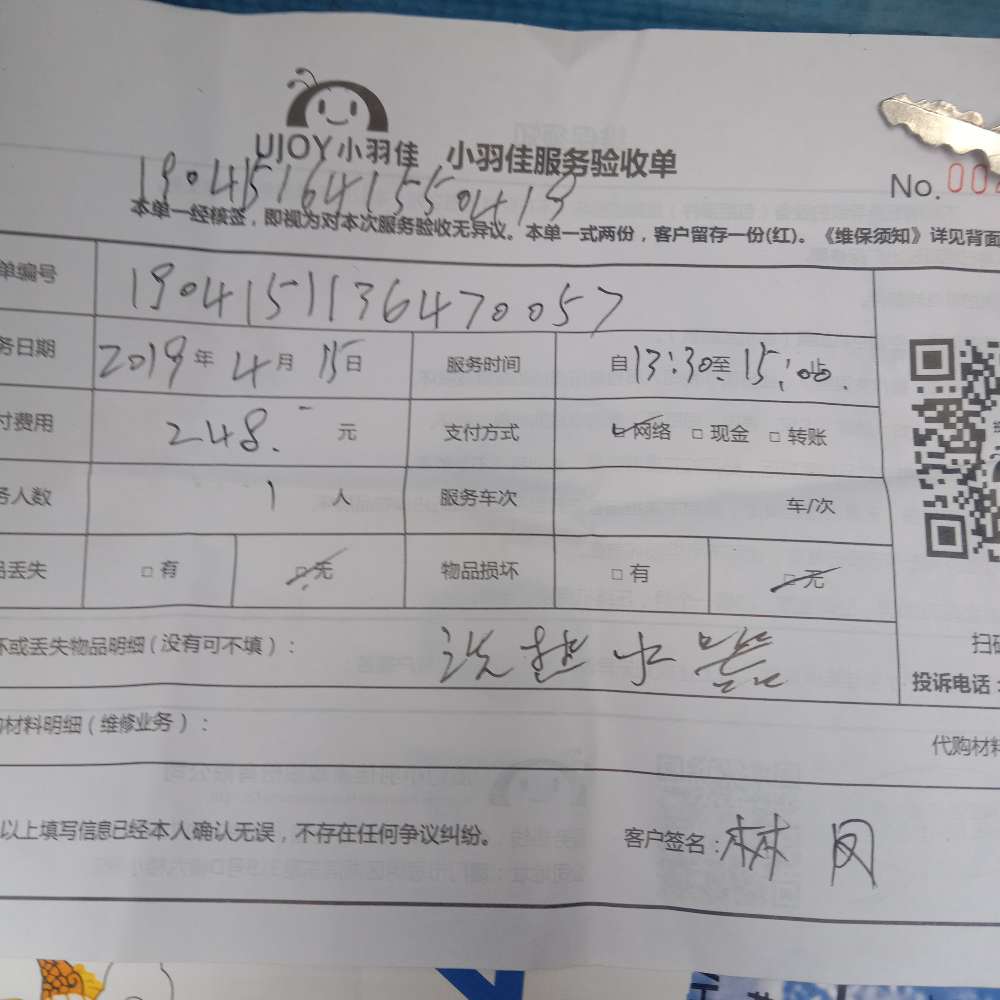 UJOY小羽佳 小羽佳服务验收单
No. 00
19041516415550419
本单一经核签，即视为对本次服务验收无异议。本单一式两份，客户留存一份(红)。《维保须知》详见背面
单编号 1904151136470057
务日期 2019年4月15日 服务时间 自13:30至15:00止
付费用 248.- 元 支付方式 网络 □现金 □转账
务人数 1 人 服务车次 车/次
品丢失 □有 □无 物品损坏 □有 □无
坏或丢失物品明细(没有可不填)：
扫码
投诉电话：
购材料明细(维修业务)：
代购材料
以上填写信息已经本人确认无误，不存在任何争议纠纷。 客户签名：林